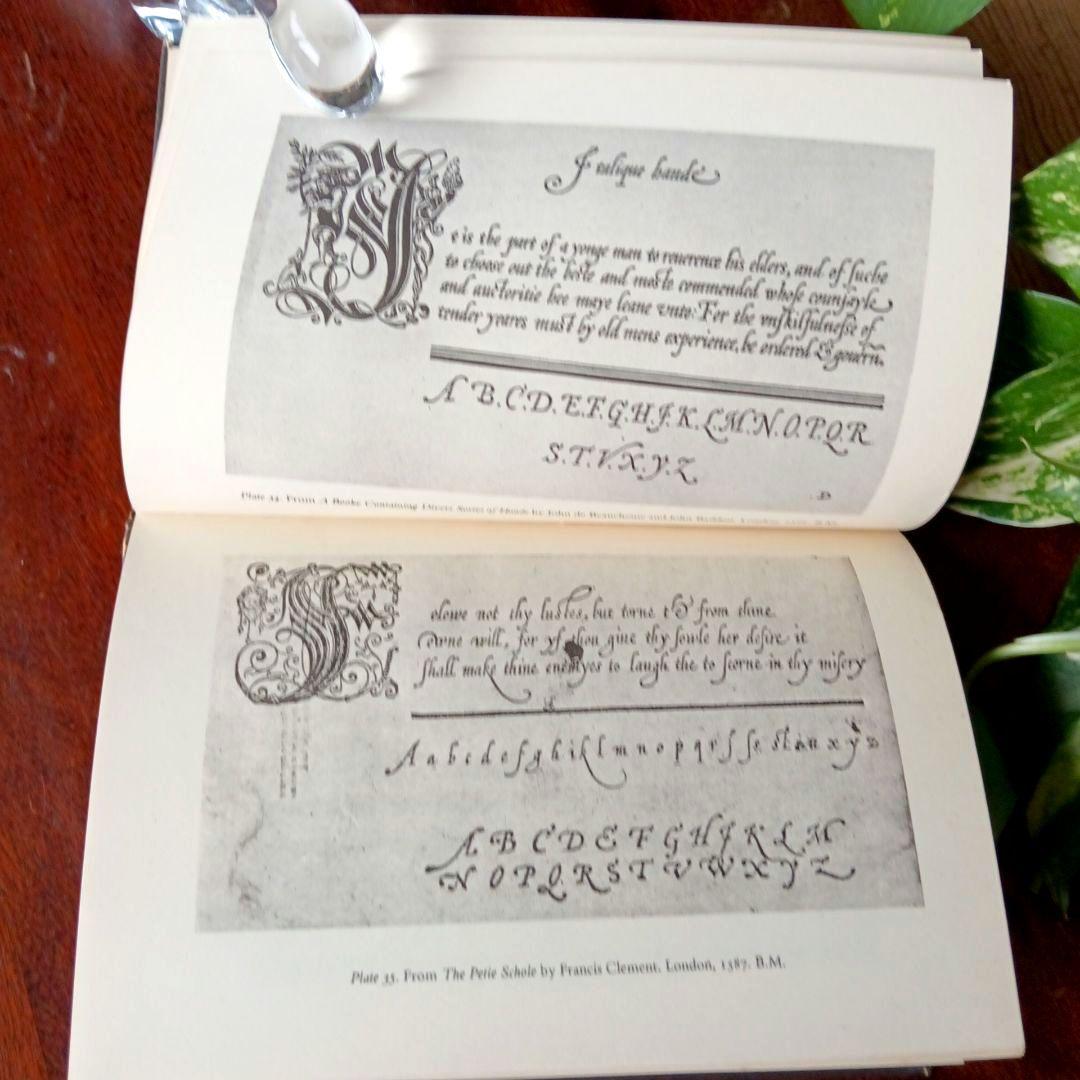 Italique hande
It is the part of a yonge man to reuerence his elders, and of suche
to choose out the beste and moste commended whose counsayle
and auctoritie hee maye leane vnto: For the vnskilfulnesse of
tender yeares must by old mens experience, be ordered & gouern.
A B.C.D.E.F.G.H.J.K.L.M.N.O.P.Q.R
S.T.V.X.Y.Z
D
Plate 34. From A Booke Containing Divers Sortes of Hands by John de Beauchesne and John Baildon. London
Folowe not thy lustes, but torne from thine
owne will, for yf thou giue thy sowle her desire it
shall make thine enemyes to laugh the to scorne in thy misery
A a b c d e f g h i k l m n o p q r s ſ ſs st t u x y z
A B C D E F G H J K L M
N O P Q R S T V W X Y Z
Plate 35. From The Petie Schole by Francis Clement. London, 1587. B.M.